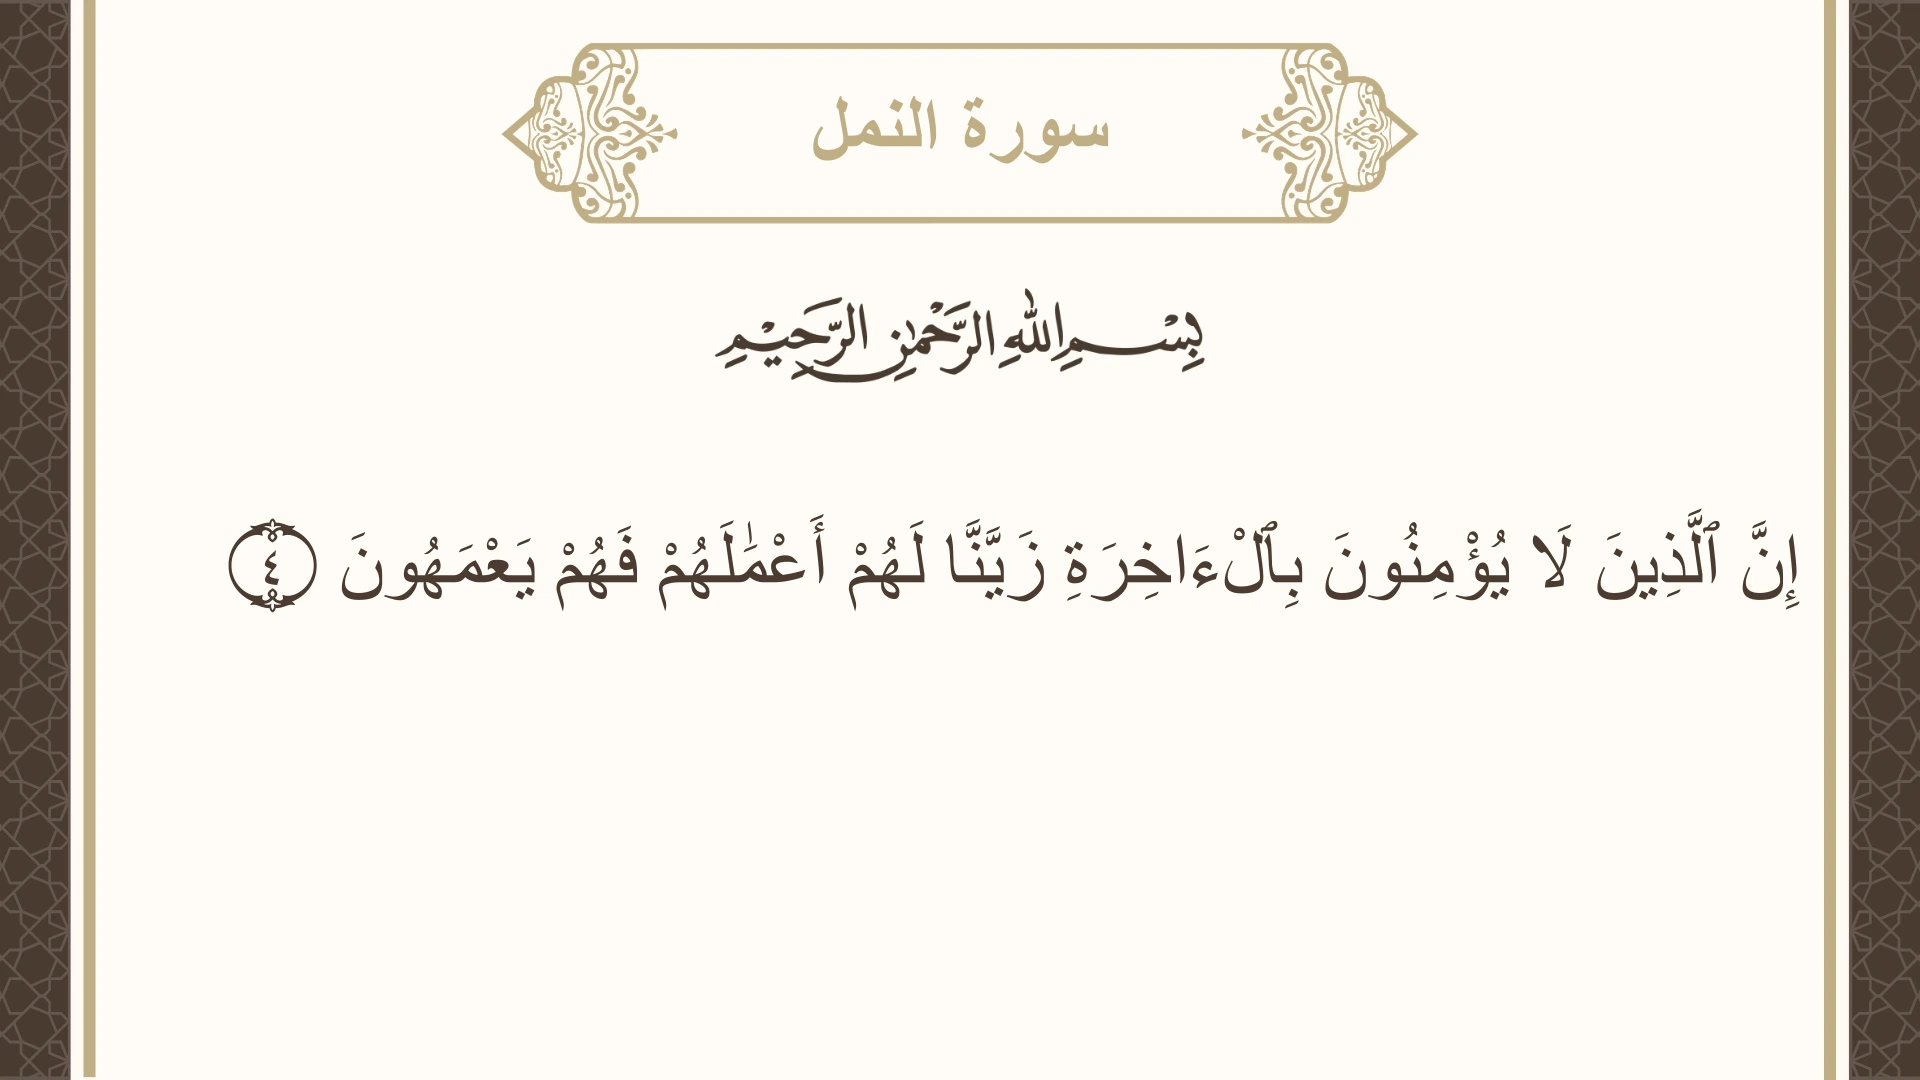 سورة النمل
بِسْمِ اللهِ الرَّحْمٰنِ الرَّحِيْمِ
إِنَّ ٱلَّذِينَ لَا يُؤْمِنُونَ بِٱلْءَاخِرَةِ زَيَّنَّا لَهُمْ أَعْمَٰلَهُمْ فَهُمْ يَعْمَهُونَ ٤